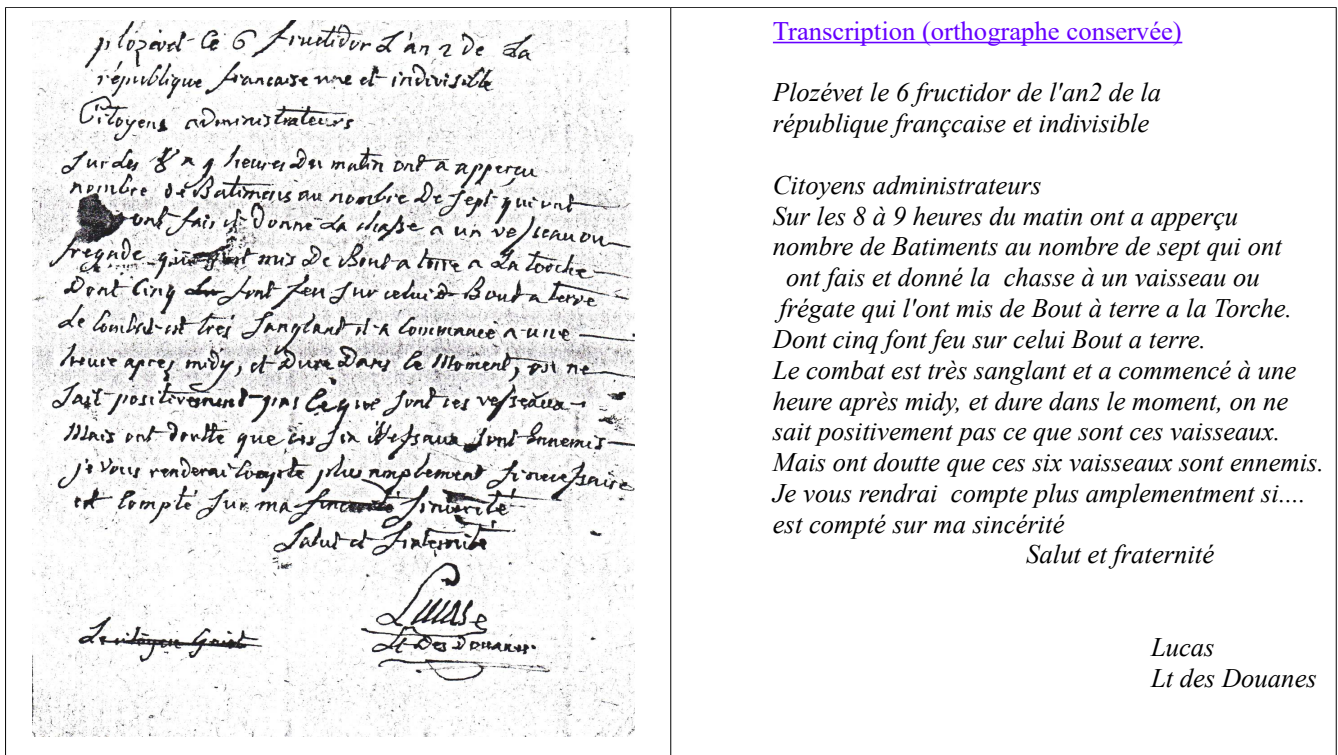 plozevet Ce 6 fructidor L'an 2 de La
république francaise une et indivisible
Citoyens administrateurs
Sur Les 8 a 9 heures Du matin ont a apperçu
nombre de Batimens au nombre De Sept qui ont
ont fais et Donné La chasse a un vesseau ou
fregade qui mis De Bout a terre a La torche
Dont Cinq font feu Sur celui Bout a terre
Le Combat est tres Sanglant il a Commancé a une
heure apres midy, et Dure Dans le Moment, on ne
Sait positivement pas Ce que Sont ces vesseaux
Mais ont doutte que ces Six Vessaux Sont Ennemis
je vous renderai Compte plus amplement Si necessaire
et Compté Sur ma sincerité Sincerité
Salut et fraternité
Lucas
Lt Des Douanes
Le citoyen
Transcription (orthographe conservée)
Plozévet le 6 fructidor de l'an2 de la
république françcaise et indivisible
Citoyens administrateurs
Sur les 8 à 9 heures du matin ont a apperçu
nombre de Batiments au nombre de sept qui ont
ont fais et donné la chasse à un vaisseau ou
frégate qui l'ont mis de Bout à terre a la Torche.
Dont cinq font feu sur celui Bout a terre.
Le combat est très sanglant et a commencé à une
heure après midy, et dure dans le moment, on ne
sait positivement pas ce que sont ces vaisseaux.
Mais ont doutte que ces six vaisseaux sont ennemis.
Je vous rendrai compte plus amplementment si....
est compté sur ma sincérité
Salut et fraternité
Lucas
Lt des Douanes